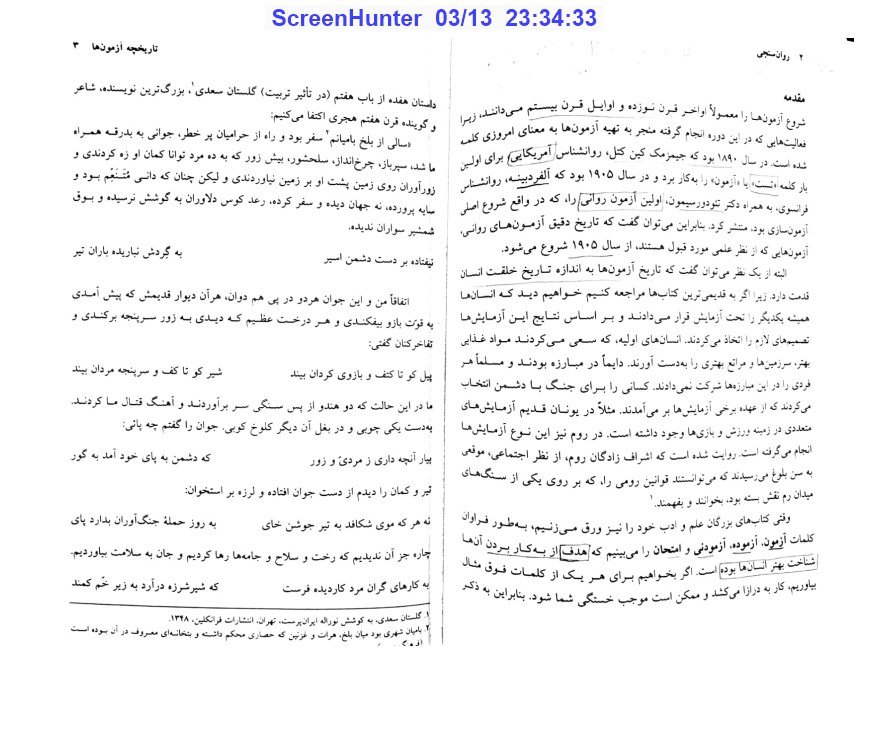 ScreenHunter 03/13 23:34:33
۲ روان‌سنجی
مقدمه
شروع آزمون‌ها را معمولاً اواخر قرن نوزده و اوایل قرن بیستم می‌دانند، زیرا
فعالیت‌هایی که در این دوره انجام گرفته منجر به تهیه آزمون‌ها به معنای امروزی کلمه
شده است. در سال ۱۸۹۰ بود که جیمزمک کین کتل، روانشناس آمریکایی برای اولین
بار کلمه «تست» یا «آزمون» را به‌کار برد و در سال ۱۹۰۵ بود که آلفردبینه، روانشناس
فرانسوی، به همراه دکتر تئودورسیمون، اولین آزمون روانی را، که در واقع شروع اصلی
آزمون‌سازی بود، منتشر کرد. بنابراین می‌توان گفت که تاریخ دقیق آزمون‌های روانی،
آزمون‌هایی که از نظر علمی مورد قبول هستند، از سال ۱۹۰۵ شروع می‌شود.
البته از یک نظر می‌توان گفت که تاریخ آزمون‌ها به اندازه تاریخ خلقت انسان
قدمت دارد. زیرا اگر به قدیمی‌ترین کتاب‌ها مراجعه کنیم خواهیم دید که انسان‌ها
همیشه یکدیگر را تحت آزمایش قرار می‌دادند و بر اساس نتایج این آزمایش‌ها
تصمیم‌های لازم را اتخاذ می‌کردند. انسان‌های اولیه، که سعی می‌کردند مواد غذایی
بهتر، سرزمین‌ها و مراتع بهتری را به‌دست آورند. دایماً در مبارزه بودند و مسلماً هر
فردی را در این مبارزه‌ها شرکت نمی‌دادند. کسانی را برای جنگ با دشمن انتخاب
می‌کردند که از عهده برخی آزمایش‌ها بر می‌آمدند. مثلاً در یونان قدیم آزمایش‌های
متعددی در زمینه ورزش و بازی‌ها وجود داشته است. در روم نیز این نوع آزمایش‌ها
انجام می‌گرفته است. روایت شده است که اشراف زادگان روم، از نظر اجتماعی، موقعی
به سن بلوغ می‌رسیدند که می‌توانستند قوانین رومی را، که بر روی یکی از سنگ‌های
میدان رم نقش بسته بود، بخوانند و بفهمند.۱
وقتی کتاب‌های بزرگان علم و ادب خود را نیز ورق می‌زنیم، به‌طور فراوان
کلمات آزمون، آزموده، آزمودنی و امتحان را می‌بینیم که هدف از به‌کار بردن آن‌ها
شناخت بهتر انسان‌ها بوده است. اگر بخواهیم برای هر یک از کلمات فوق مثال
بیاوریم، کار به درازا می‌کشد و ممکن است موجب خستگی شما شود. بنابراین به ذکر
تاریخچه آزمون‌ها ۳
داستان هفده از باب هفتم (در تأثیر تربیت) گلستان سعدی۱، بزرگ‌ترین نویسنده، شاعر
و گوینده قرن هفتم هجری اکتفا می‌کنیم:
«سالی از بلخ بامیانم۲ سفر بود و راه از حرامیان پر خطر، جوانی به بدرقه همراه
ما شد، سپرباز، چرخ‌انداز، سلحشور، بیش زور که به ده مرد توانا کمان او زه کردندی و
زورآوران روی زمین پشت او بر زمین نیاوردندی و لیکن چنان که دانی مُتَنَعِّم بود و
سایه پرورده، نه جهان دیده و سفر کرده، رعد کوس دلاوران به گوشش نرسیده و بوق
شمشیر سواران ندیده.
نیفتاده بر دست دشمن اسیر به گِردش نباریده باران تیر
اتفاقاً من و این جوان هردو در پی هم دوان، هرآن دیوار قدیمش که پیش آمدی
به قوّت بازو بیفکندی و هر درخت عظیم که دیدی به زور سرپنجه برکندی و
تفاخرکنان گفتی:
پیل کو تا کتف و بازوی کردان بیند شیر کو تا کف و سرپنجه مردان بیند
ما در این حالت که دو هندو از پس سنگی سر برآوردند و آهنگ قتال ما کردند.
به‌دست یکی چوبی و در بغل آن دیگر کلوخ کوبی. جوان را گفتم چه پائی:
بیار آنچه داری ز مردیّ و زور که دشمن به پای خود آمد به گور
تیر و کمان را دیدم از دست جوان افتاده و لرزه بر استخوان:
نه هر که موی شکافد به تیر جوشن خای به روز حملهٔ جنگ‌آوران بدارد پای
چاره جز آن ندیدیم که رخت و سلاح و جامه‌ها رها کردیم و جان به سلامت بیاوردیم.
به کارهای گران مرد کاردیده فرست که شیرشرزه درآرد به زیر خّم کمند
۱. گلستان سعدی، به کوشش نوراله ایران‌پرست، تهران، انتشارات فرانکلین، ۱۳۴۸.
۲. بامیان شهری بود میان بلخ، هرات و غزنین که حصاری محکم داشته و بتخانه‌ای معروف در آن بوده است